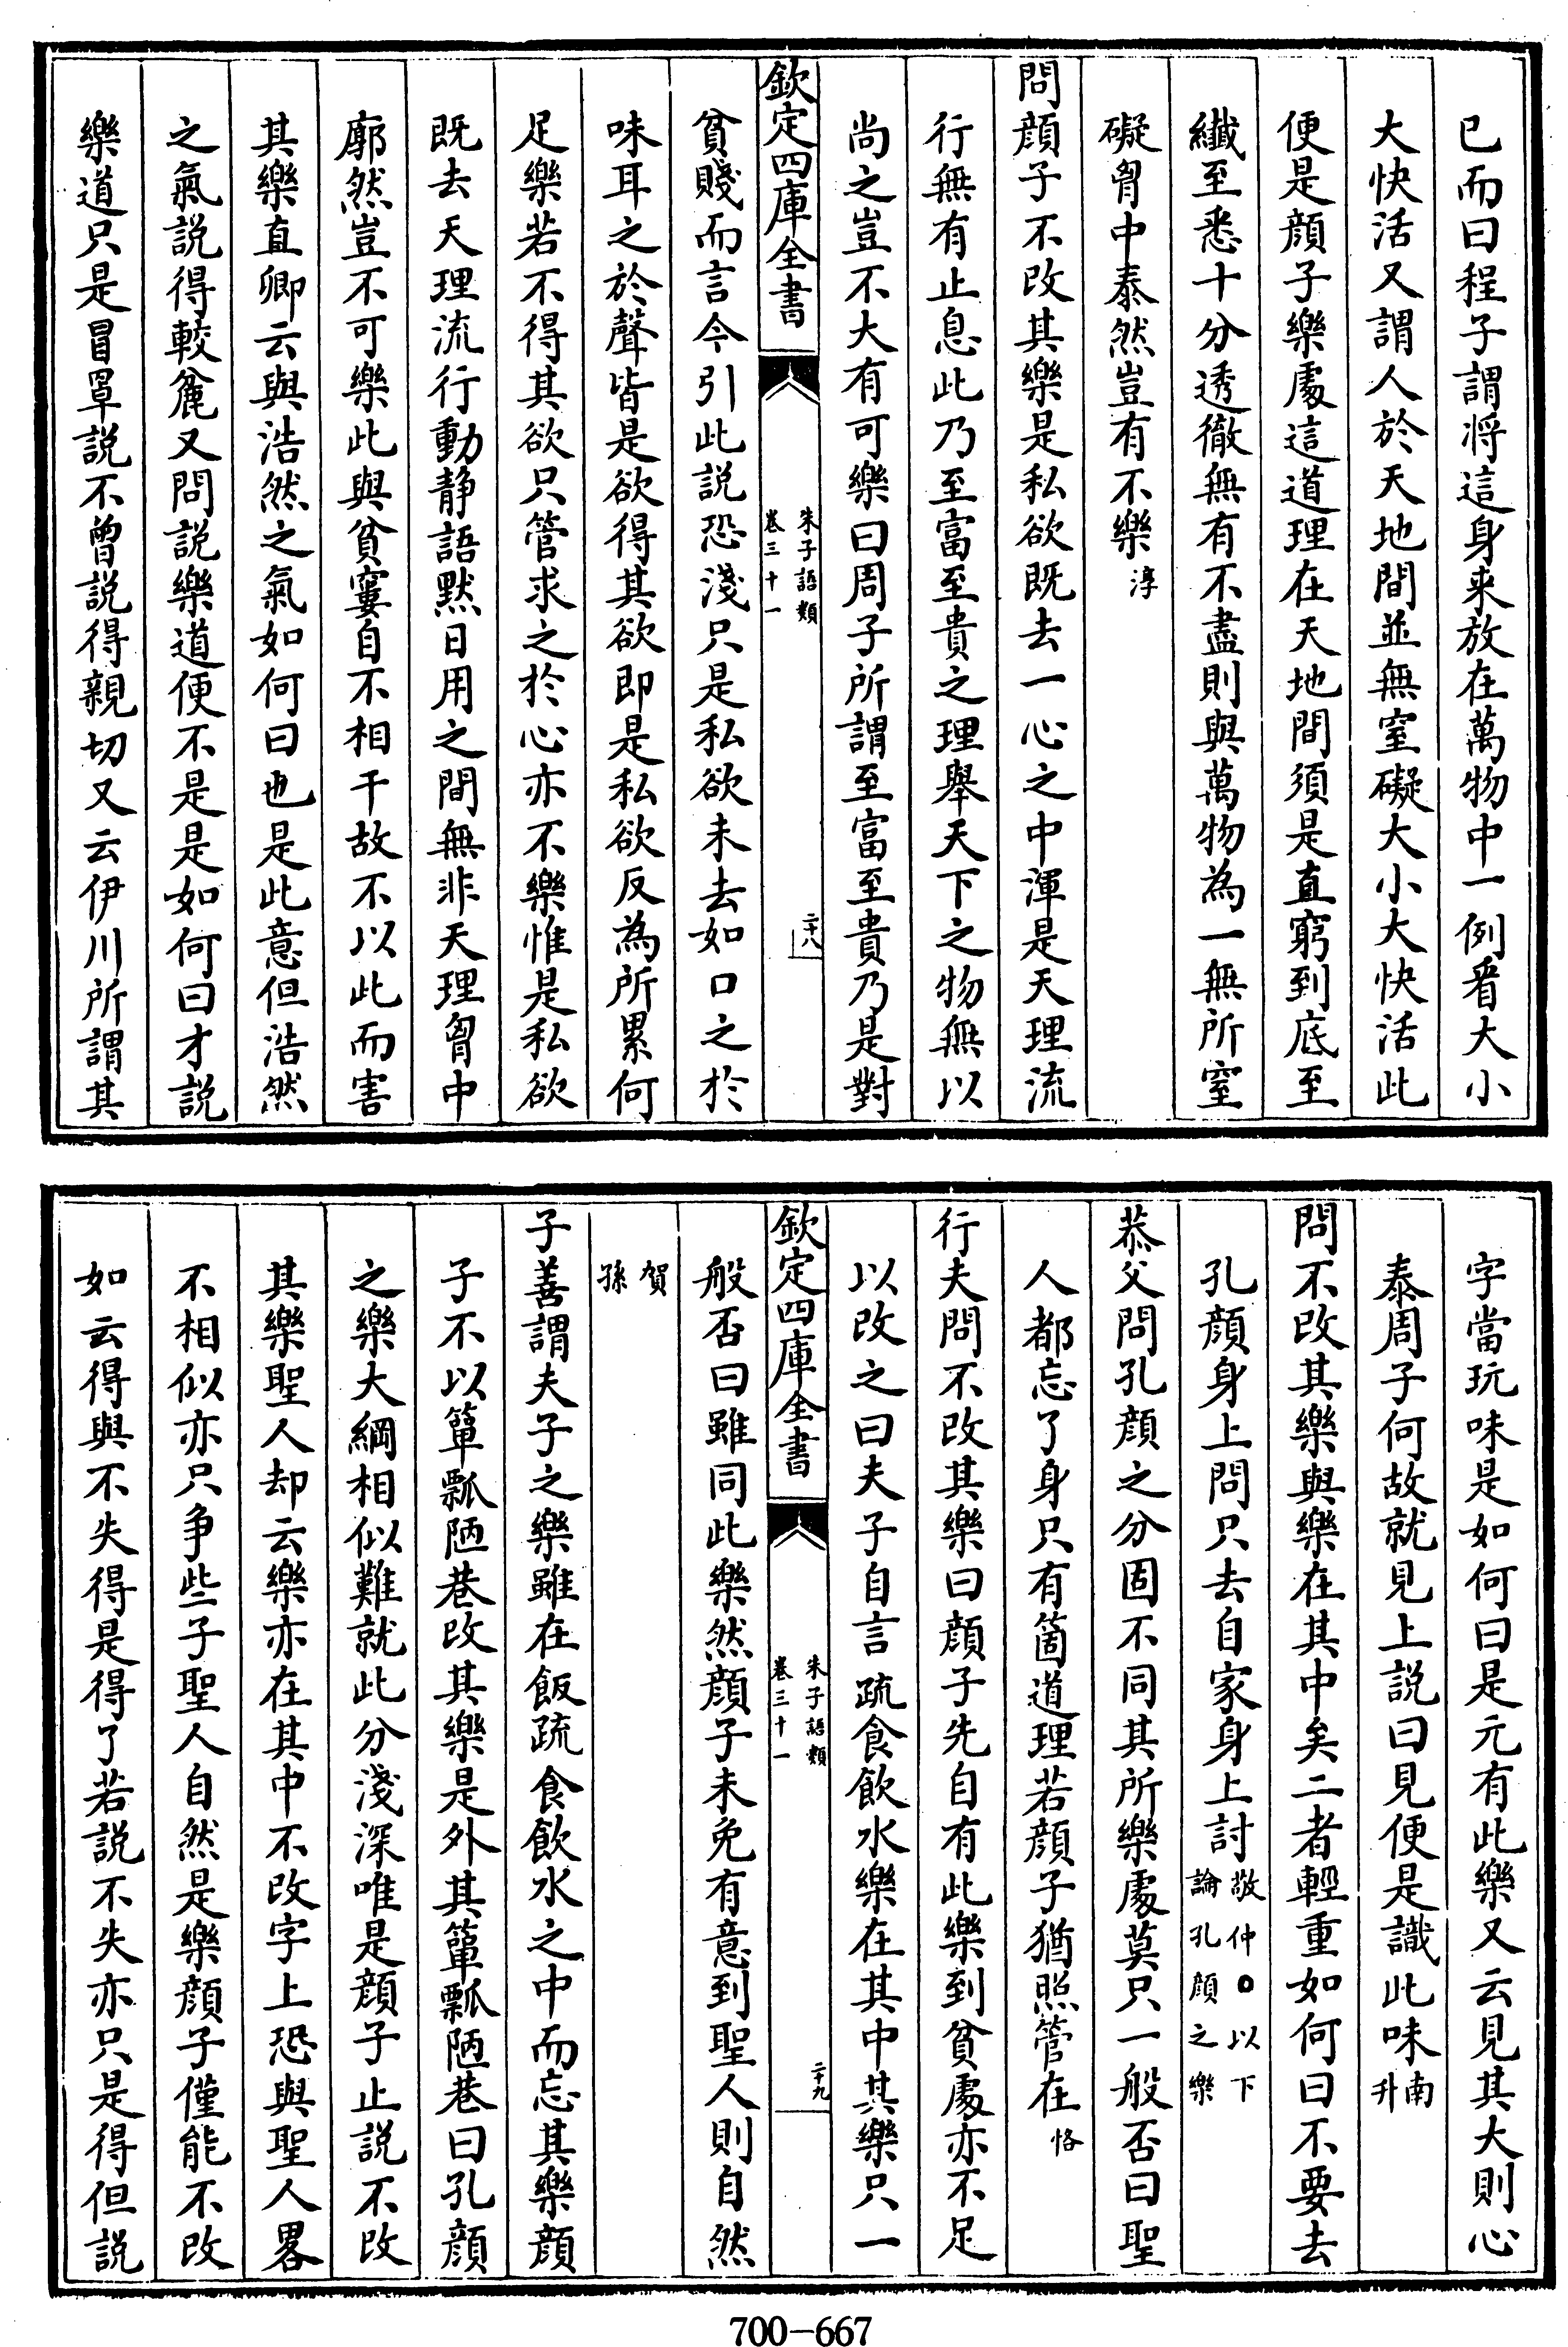 已而曰程子謂将這身来放在萬物中一例看大小
大快活又謂人於天地間並無窒礙大小大快活此
便是顔子樂處這道理在天地間須是直窮到底至
纖至悉十分透徹無有不盡則與萬物為一無所窒
礙胷中泰然豈有不樂淳
問顔子不改其樂是私欲既去一心之中渾是天理流
行無有止息此乃至富至貴之理舉天下之物無以
尚之豈不大有可樂曰周子所謂至富至貴乃是對
欽定四庫全書
朱子語類
卷三十一
二十八
貧賤而言今引此説恐淺只是私欲未去如口之於
味耳之於聲皆是欲得其欲即是私欲反為所累何
足樂若不得其欲只管求之於心亦不樂惟是私欲
既去天理流行動静語默日用之間無非天理胷中
廓然豈不可樂此與貧窶自不相干故不以此而害
其樂直卿云與浩然之氣如何曰也是此意但浩然
之氣説得較麄又問説樂道便不是是如何曰才説
樂道只是冒罩説不曽説得親切又云伊川所謂其
字當玩味是如何曰是元有此樂又云見其大則心
泰周子何故就見上説曰見便是識此味南升
問不改其樂與樂在其中矣二者輕重如何曰不要去
孔顔身上問只去自家身上討敬仲○以下論孔顔之樂
恭父問孔顔之分固不同其所樂處莫只一般否曰聖
人都忘了身只有箇道理若顔子猶照管在恪
行夫問不改其樂曰顔子先自有此樂到貧處亦不足
以改之曰夫子自言疏食飲水樂在其中其樂只一
欽定四庫全書
朱子語類
卷三十一
二十九
般否曰雖同此樂然顔子未免有意到聖人則自然
賀孫
子善謂夫子之樂雖在飯疏食飲水之中而忘其樂顔
子不以簞瓢陋巷改其樂是外其簞瓢陋巷曰孔顔
之樂大綱相似難就此分淺深唯是顔子止説不改
其樂聖人却云樂亦在其中不改字上恐與聖人畧
不相似亦只争些子聖人自然是樂顔子僅能不改
如云得與不失得是得了若説不失亦只是得但説
700-667